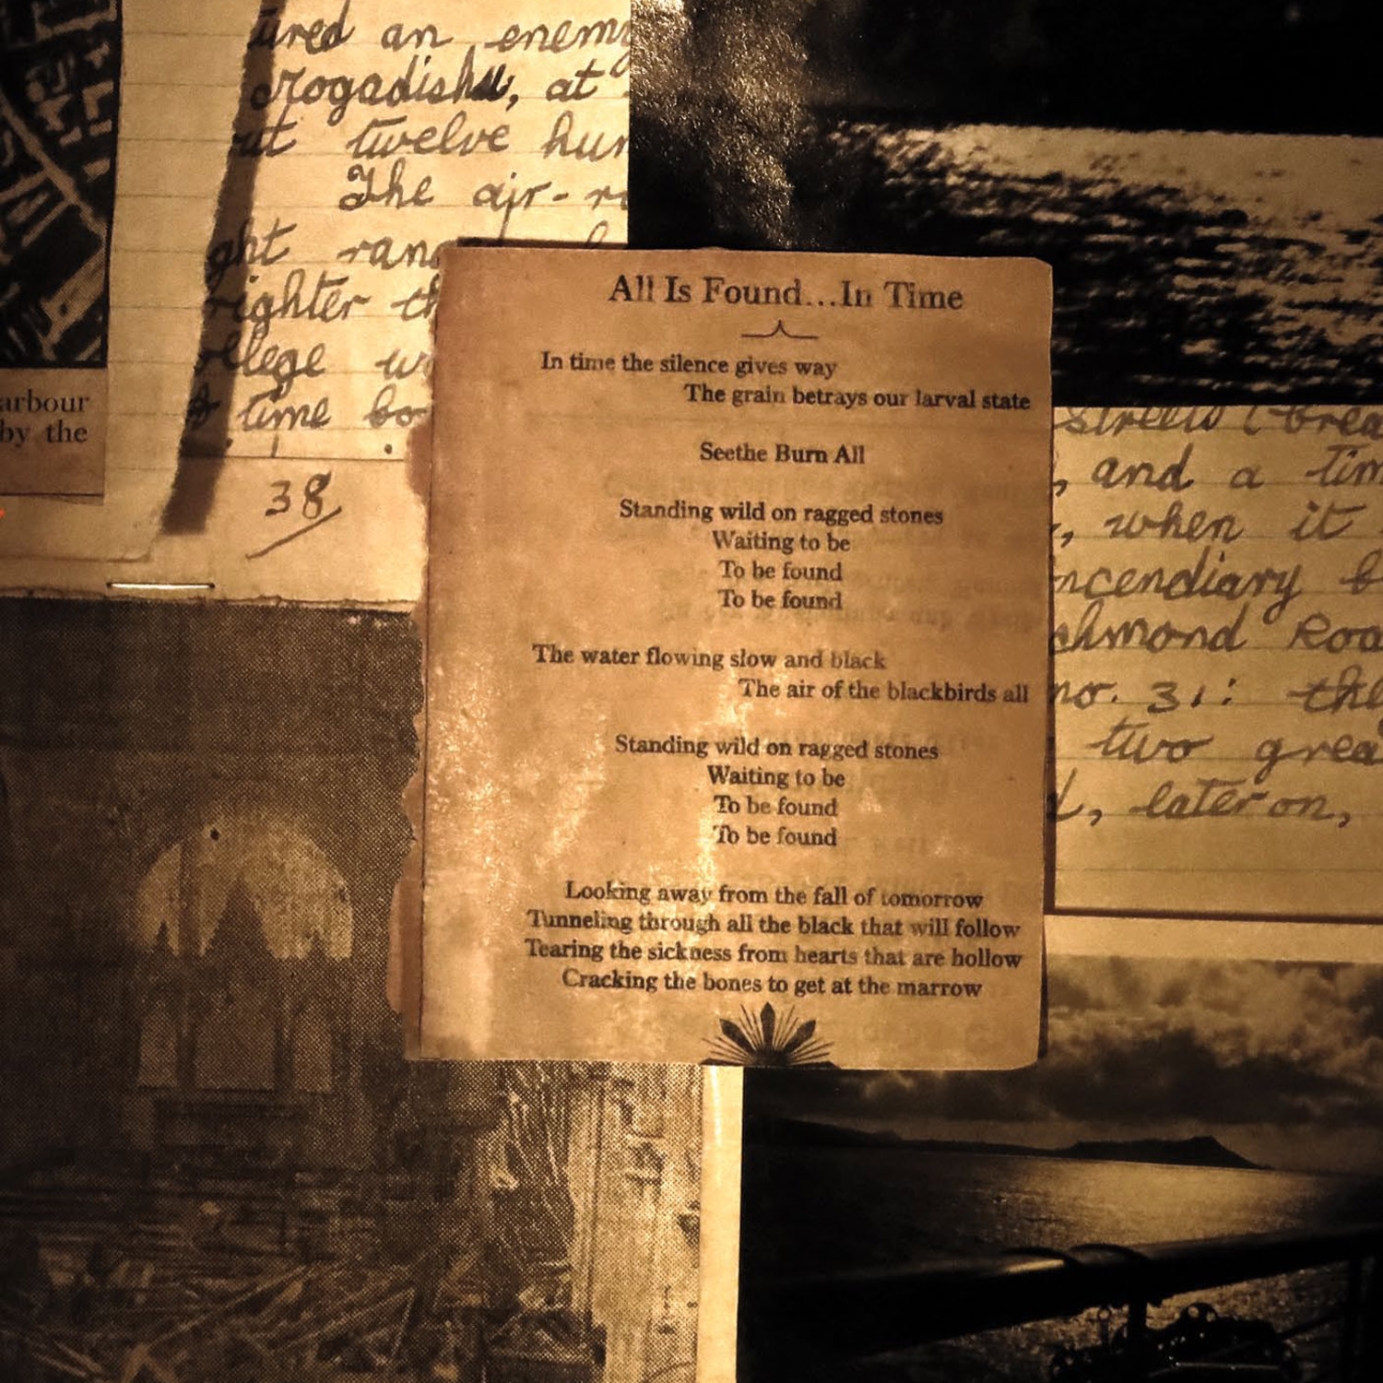 an enemy
Mogadishu, at
twelve
The air-
time
38
arbour
by the
All Is Found...In Time
In time the silence gives way
The grain betrays our larval state
Seethe Burn All
Standing wild on ragged stones
Waiting to be
To be found
To be found
The water flowing slow and black
The air of the blackbirds all
Standing wild on ragged stones
Waiting to be
To be found
To be found
Looking away from the fall of tomorrow
Tunneling through all the black that will follow
Tearing the sickness from hearts that are hollow
Cracking the bones to get at the marrow
streets
, and a tim
, when it
ncendiary b
chmond Roa
no. 31: the
two grea
d, later on,